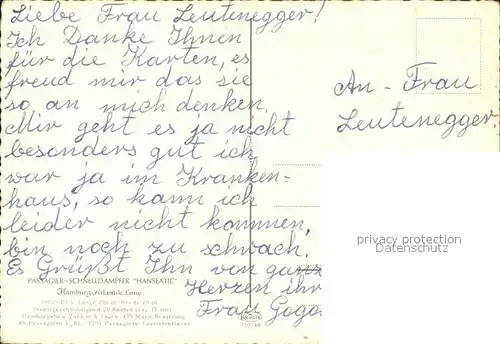 Liebe Frau Leutenegger!
Ich Danke Ihnen
für die Karten, es
freud mir das sie
so an mich denken.
Mir geht es ja nicht
besonders gut ich
war ja im Kranken=
haus, so kann ich
leider nicht kommen,
bin noch zu schwach.
Es Grüßt Ihn von ganz
Herzen ihr
Frau Gogo
An - Frau
Leutenegger.
privacy protection
www.ansichtskartenversand.com
PASSAGIER-SCHNELLDAMPFER "HANSEATIC"
Hamburg-Atlantik Linie